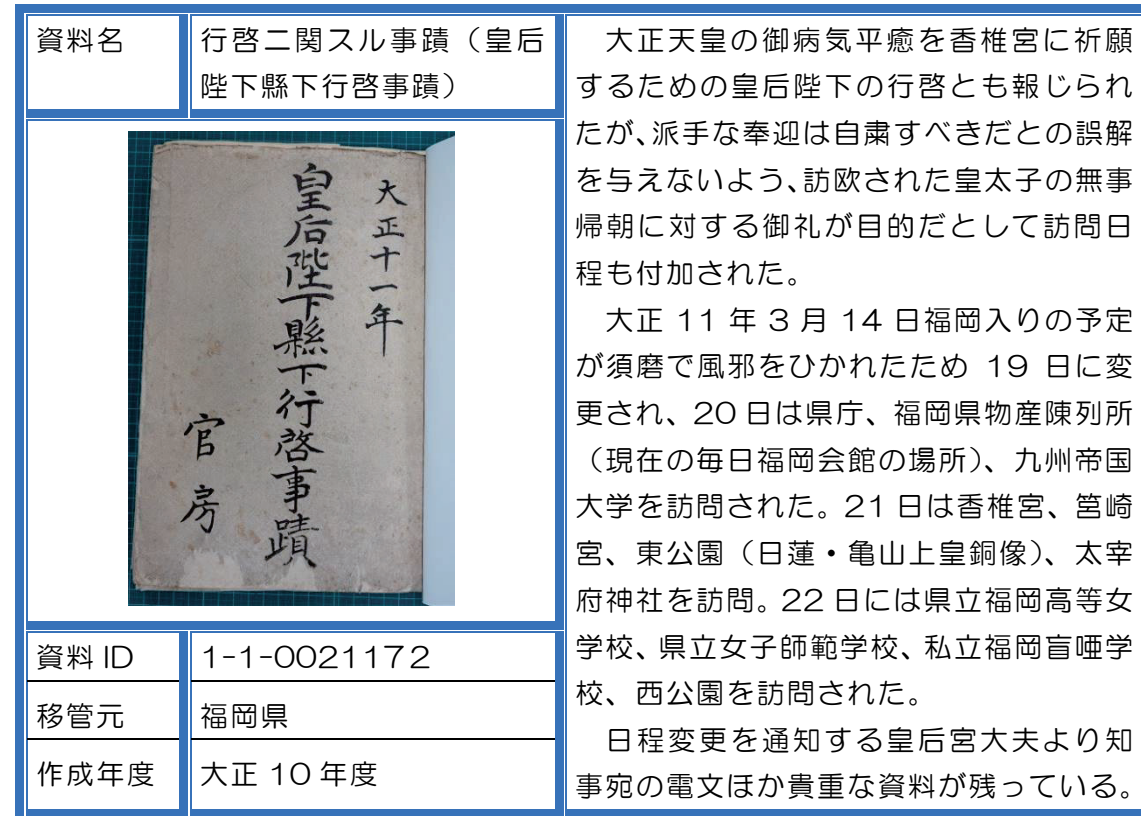 資料名
行啓二関スル事蹟（皇后
陛下縣下行啓事蹟）
大正十一年
皇后陛下縣下行啓事蹟
官房
資料 ID
1-1-0021172
移管元
福岡県
作成年度
大正 10 年度
大正天皇の御病気平癒を香椎宮に祈願
するための皇后陛下の行啓とも報じられ
たが、派手な奉迎は自粛すべきだとの誤解
を与えないよう、訪欧された皇太子の無事
帰朝に対する御礼が目的だとして訪問日
程も付加された。
大正 11 年 3 月 14 日福岡入りの予定
が須磨で風邪をひかれたため 19 日に変
更され、20 日は県庁、福岡県物産陳列所
（現在の毎日福岡会館の場所）、九州帝国
大学を訪問された。21 日は香椎宮、筥崎
宮、東公園（日蓮・亀山上皇銅像）、太宰
府神社を訪問。22 日には県立福岡高等女
学校、県立女子師範学校、私立福岡盲唖学
校、西公園を訪問された。
日程変更を通知する皇后宮大夫より知
事宛の電文ほか貴重な資料が残っている。